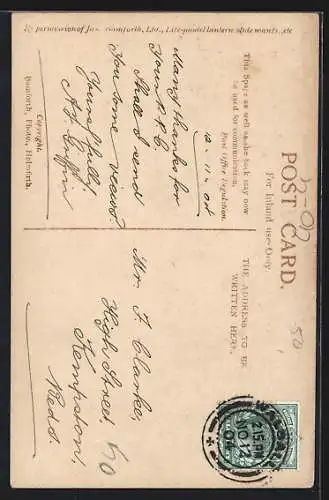 By permission of Jas. Bamforth, Ltd., Life-model lantern slide manfts., etc
This Space as well as the back may now
be used for communication.
Post Office Regulation.
12-11-04
Many thanks for
Your P.P.C.
Shall I send
You some views?
Yours ffully
A. Griffin
Copyright.
Bamforth, Photo., Holmfirth.
POST CARD.
For Inland use Only.
THE ADDRESS TO BE
WRITTEN HERE.
Mr. F. Clarke,
High Street,
Kempston,
Beds.
50
50
WALSALL
2.15 PM
NO 12
04